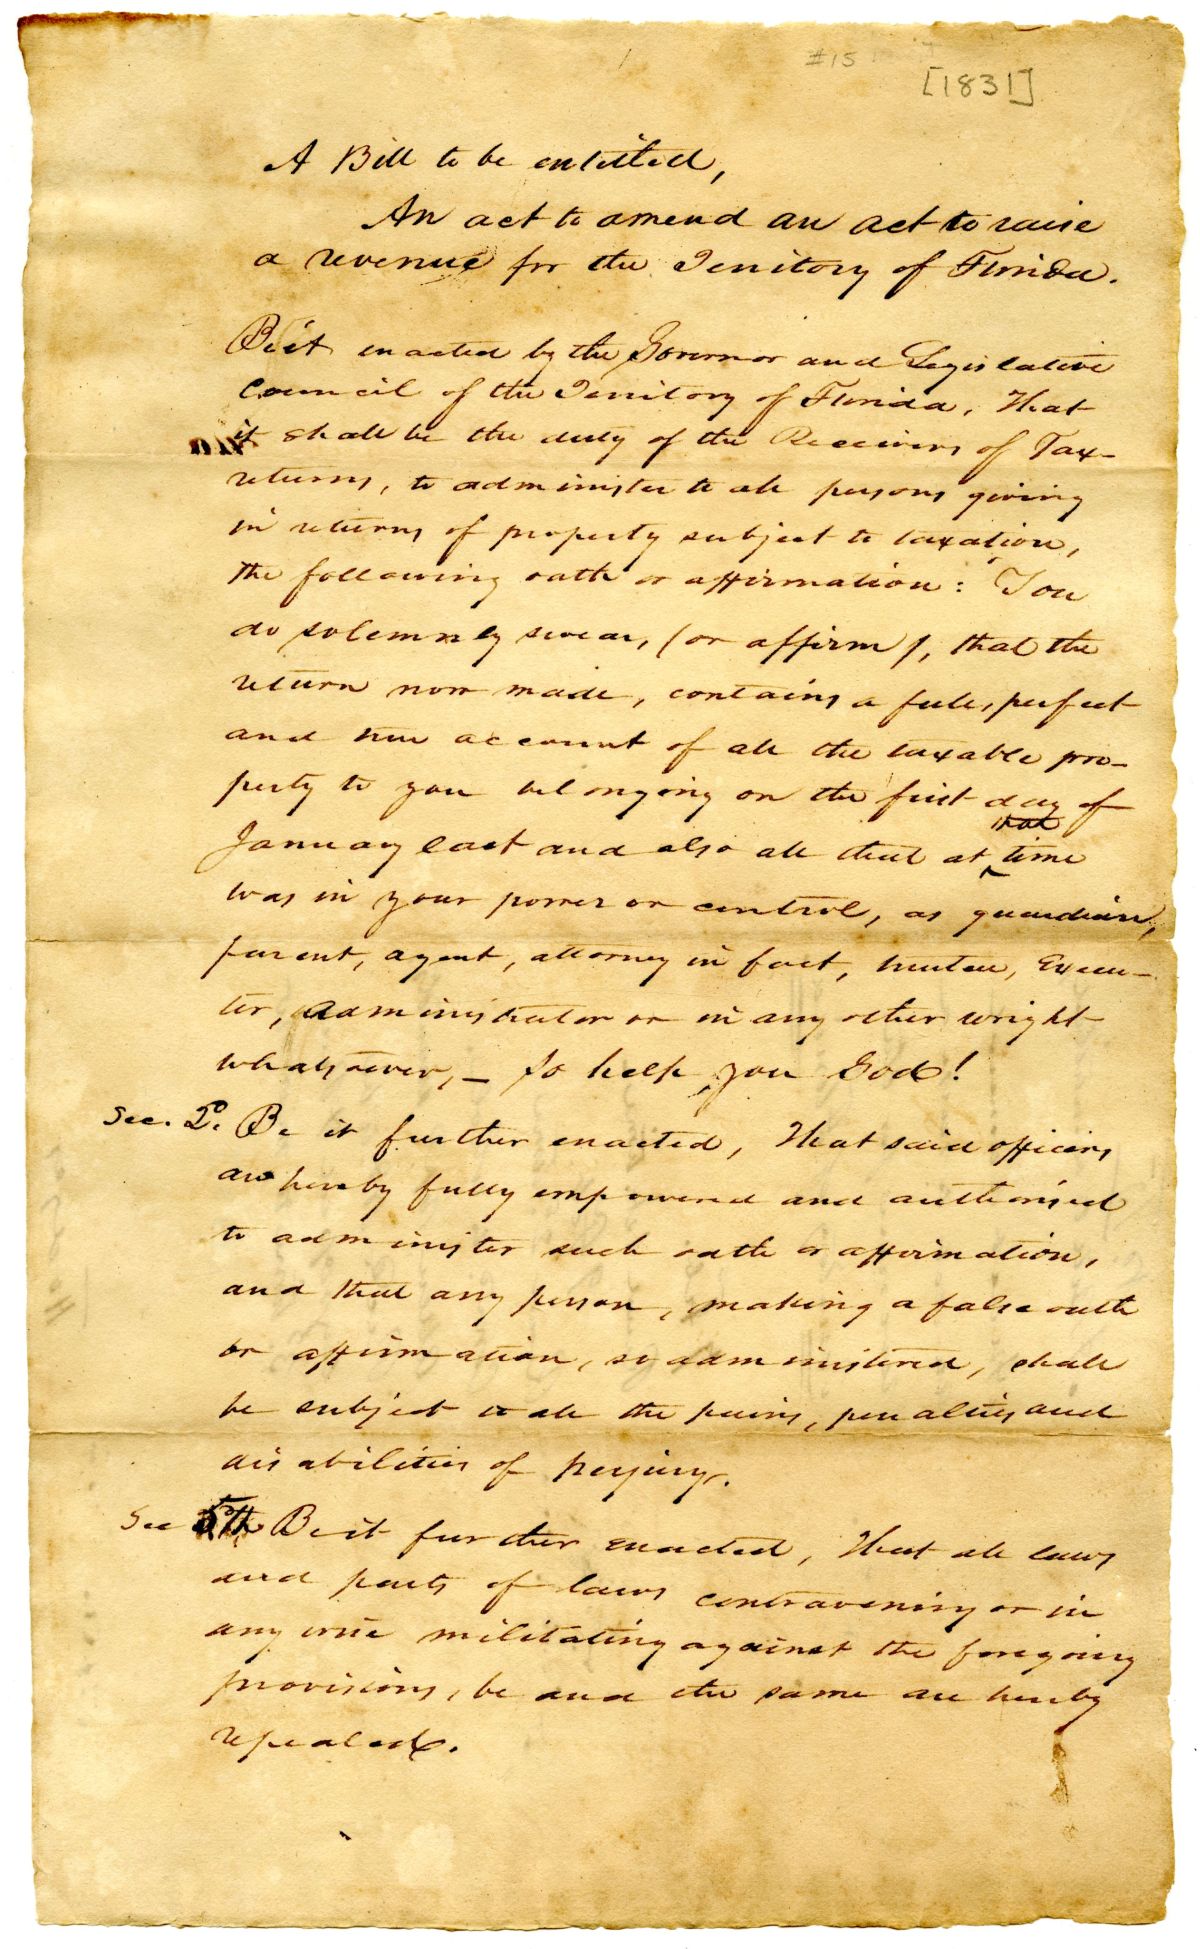 #15
[1831]
A Bill to be entitled,
An act to amend an act to raise
a revenue for the Territory of Florida.
Be it enacted by the Governor and Legislative
Council of the Territory of Florida, That
it shall be the duty of the Receivers of Tax-
returns, to administer to all persons giving
in returns of property subject to taxation,
the following oath or affirmation: You
do solemnly swear, (or affirm), that the
return now made, contains a full, perfect
and true account of all the taxable pro-
perty to you belonging on the first day of
January last and also all that at that time
was in your power or control, as guardian,
parent, agent, attorney in fact, trustee, Execu-
tor, administrator or in any other wright
whatsoever, - So help you God!
Sec. 2º. Be it further enacted, That said officers
are hereby fully empowered and authorised
to administer such oath or affirmation,
and that any person, making a false oath
or affirmation, so administered, shall
be subject to all the pains, penalties and
disabilities of perjury.
Sec 5th Be it further enacted, That all laws
and parts of laws contravening or in
any wise militating against the foregoing
provisions, be and the same are hereby
repealed.